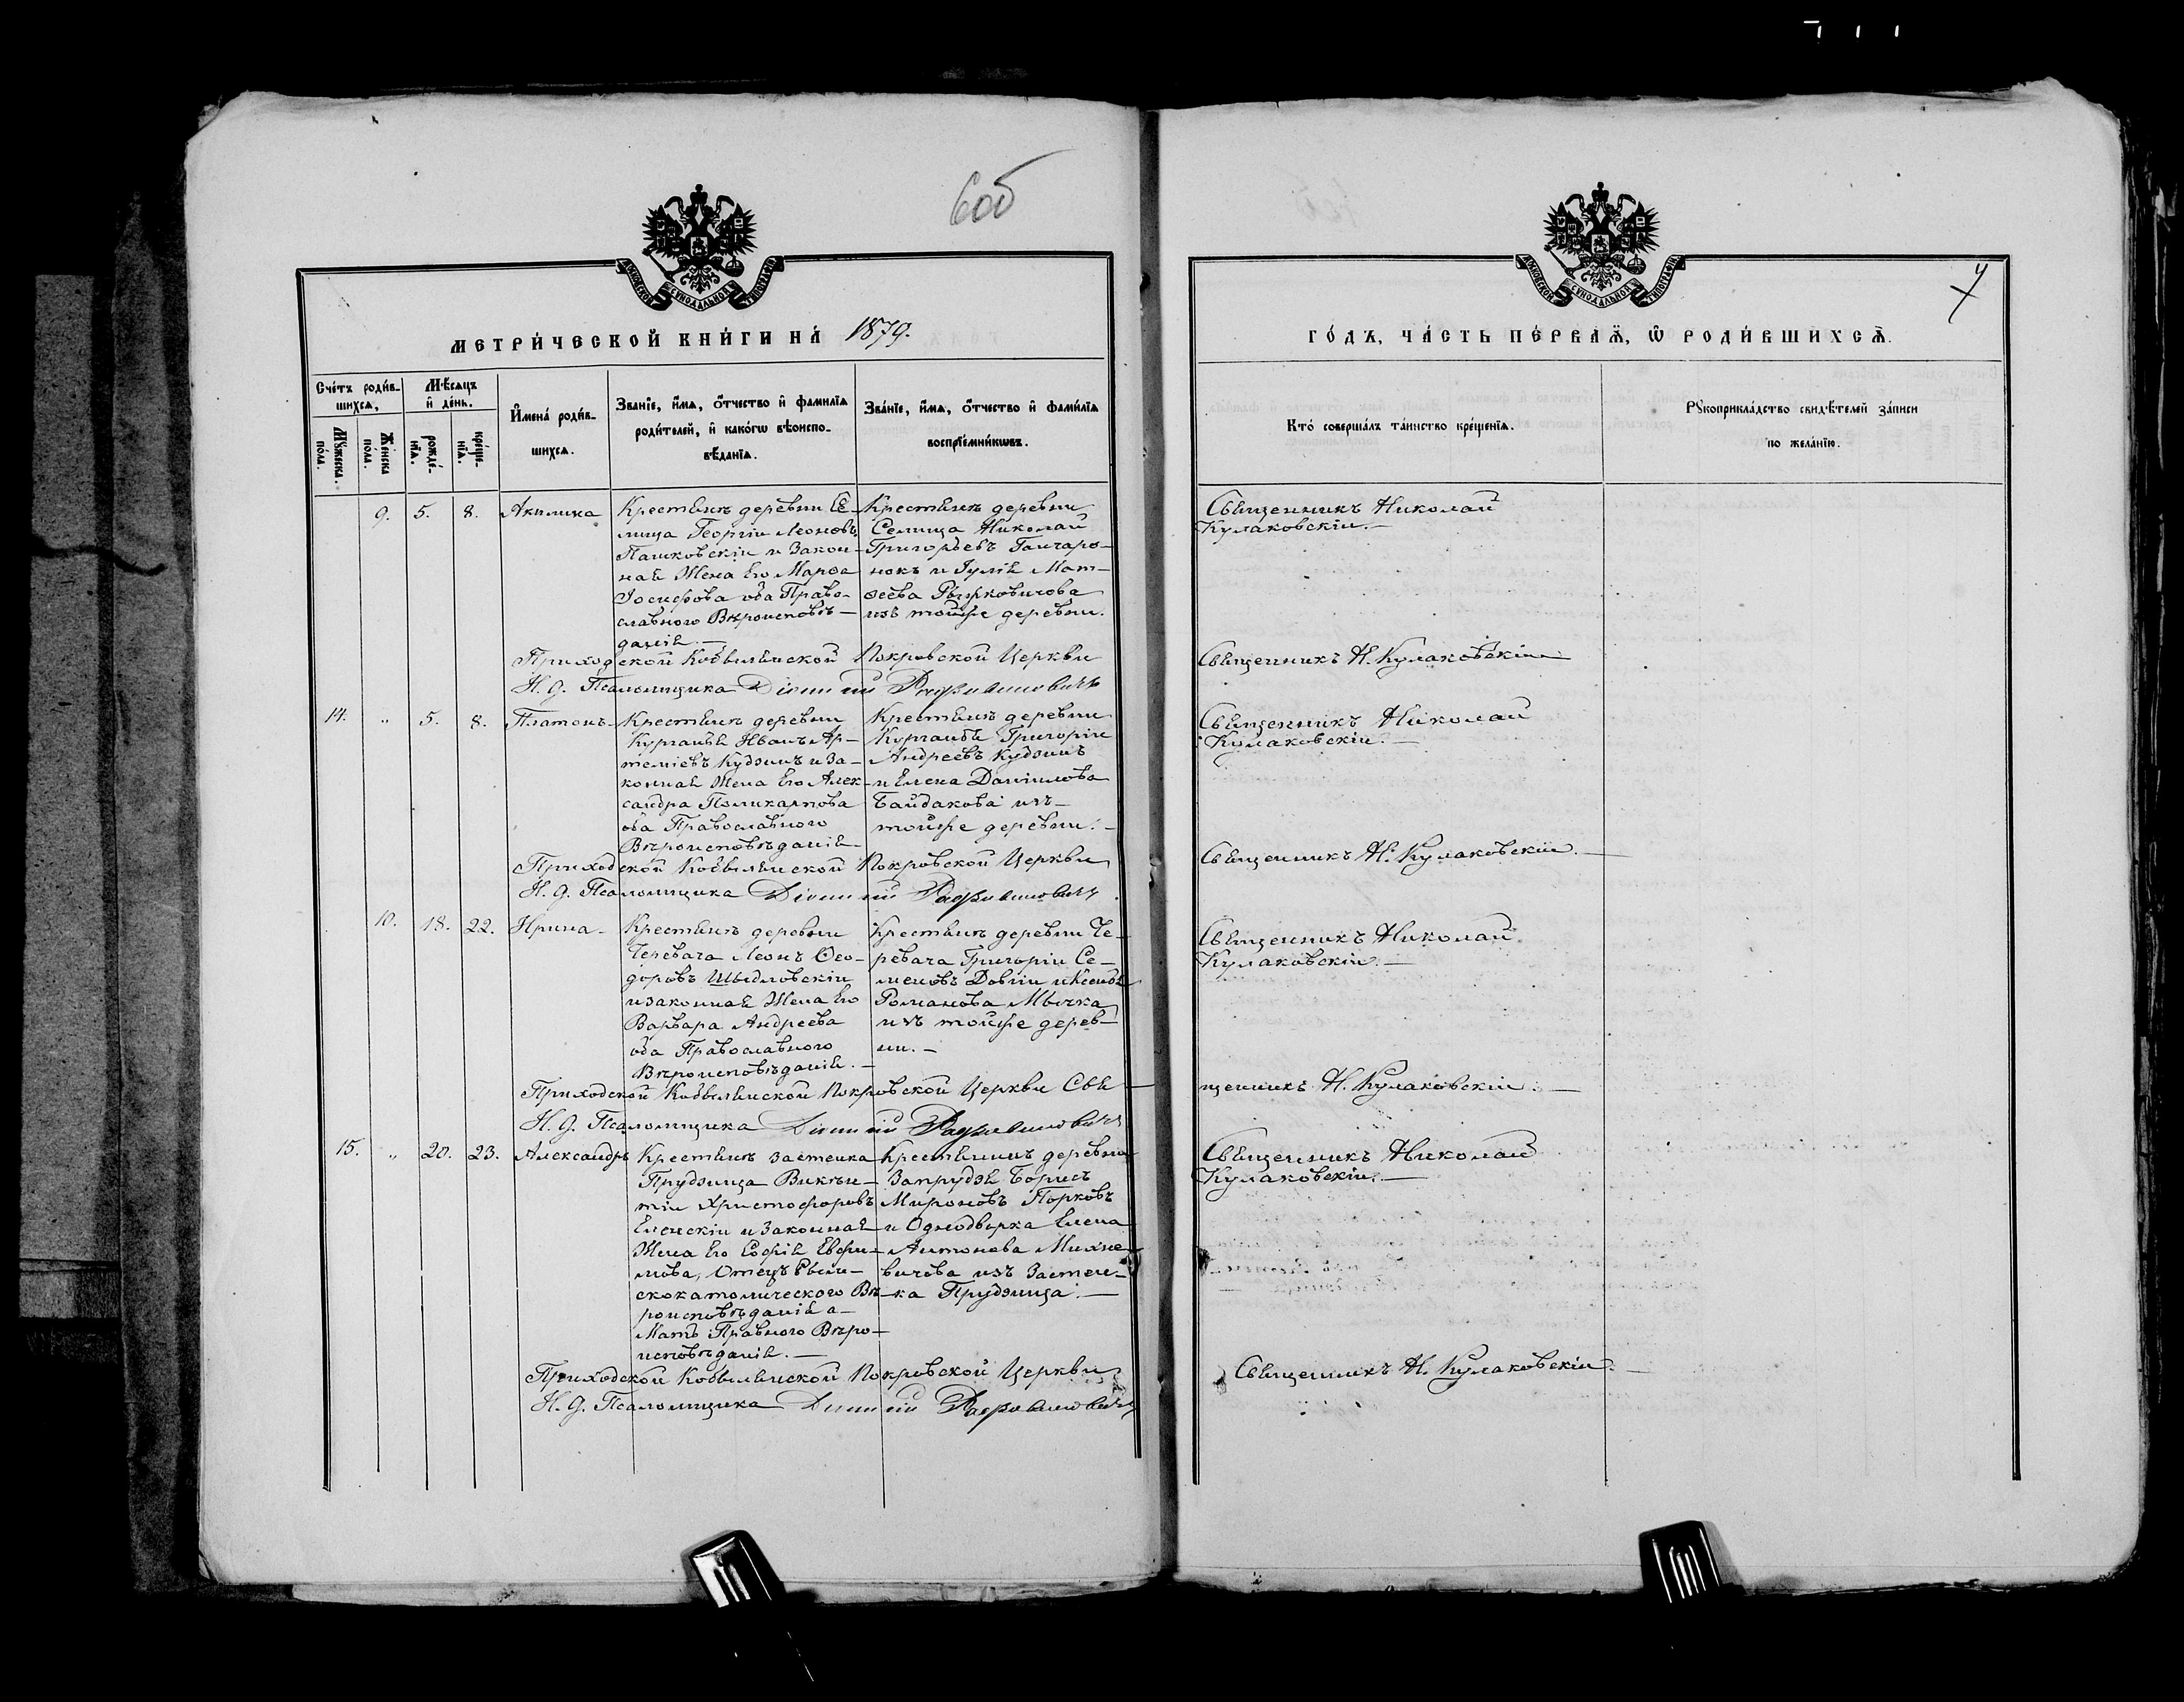 6об
МОСКОВСКОЙ СѴНОДАЛЬНОЙ ТИПОГРАФІИ
МЕТРИ́ЧЕСКОЙ КНИ́ГИ НА́ 1879.
Сче́тъ роди́в-
шихсѧ,
Мѣ́сяцъ
и҆ де́нь.
И҆мена̀ роди́в-
шихсѧ.
Зва́нїе, и҆́мѧ, ѻ҆́тчество и҆ фами́лїѧ
роди́телей, и҆ како́гѡ вѣроиспо-
вѣ́данїѧ.
Зва́нїе, и҆́мѧ, ѻ҆́тчество и҆ фами́лїѧ
воспрїе́мникѡвъ.
Мꙋ́жеска
по́ла.
Же́нска
по́ла.
рожде́-
нїѧ.
креще́-
нїѧ.
9. 5. 8. Акилина
Крестьянъ деревни Се-
лища Георгій Леоновъ
Пашковскій и Закон-
ная Жена Его Марѳа
Іосифова оба Право-
славного Вѣроисповѣ-
данія.—
Крестьянъ деревни
Селища Николай
Григорьевъ Ганчаро-
нокъ и Іулія Мат-
ѳеева
изъ тойже деревни.
Приходской Кобыльнской Покровской Церкви
И. д. Псаломщика
14. „ 5. 8. Платонъ
Крестьянъ деревни
Курганья Иванъ Ар-
теміевъ Кудзинъ и За-
конная Жена Его Алек-
сандра Поликарпова
оба Православного
Вѣроисповѣданія
Крестьянъ деревни
Курганья Григорій
Андреевъ Кудзинъ
и Елена Даніилова
Байдакова изъ
тойже деревни.—
Приходской Кобыльнской Покровской Церкви
И. д. Псаломщика
10. 18. 22. Ирина
Крестьянъ деревни
Черевача Леонъ Ѳео-
доровъ Шыдловскій
и законная Жена Его
Варвара Андреева
оба Православного
Вѣроисповѣданія.—
Крестьянъ деревни Че-
ревача Григорій Се-
меновъ
Романова Мычка
изъ тойже дерев-
ни.—
Приходской Кобыльнской Покровской Церкви Свя-
И. д. Псаломщика
15. „ 20. 23. Александръ
Крестьянъ застенка
Прудзища Викен-
тій Христофоровъ
Еленскій и Законная
Жена Его Софія Евфи-
мова, Отецъ Рим-
скокатолического Вѣ-
роисповѣданія а
Мать Правного Вѣро-
исповѣданія.—
Крестьянинъ деревни
Запрудзя Борисъ
Мироновъ Порковъ
и Однодворка Елена
Антонова Михне-
вичева изъ Застен-
ка Прудзища.—
Приходской Кобыльнской Покровской Церкви
И. д. Псаломщика
7
МОСКОВСКОЙ СѴНОДАЛЬНОЙ ТИПОГРАФІИ
ГО́ДЪ, ЧА́СТЬ ПЕ́РВАѦ, Ѽ РОДИ́ВШИХСѦ.
Кто̀ соверша́лъ та́инство креще́нїѧ.
Рꙋкоприкла́дство свидѣ́телей за́писи
по жела́нїю.
Священникъ Николай
Кулаковскій.—
Священникъ Н. Кулаковскій
Священникъ Николай
Кулаковскій.—
Священникъ Н. Кулаковскій.—
Священникъ Николай
Кулаковскій.—
щенникъ Н. Кулаковскій.—
Священникъ Николай
Кулаковскій.—
Священникъ Н. Кулаковскій.